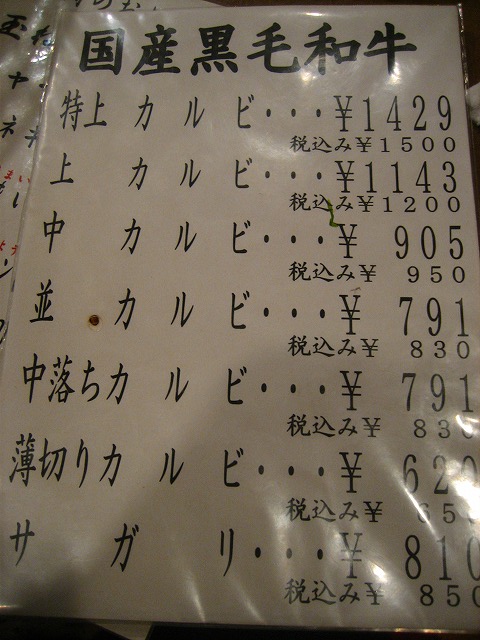 国産黒毛和牛
特上カルビ・・・¥1429
税込み¥1500
上カルビ・・・¥1143
税込み¥1200
中カルビ・・・¥905
税込み¥950
並カルビ・・・¥791
税込み¥830
中落ちカルビ・・・¥791
税込み¥830
薄切りカルビ・・・¥620
税込み¥650
サガリ・・・¥810
税込み¥850